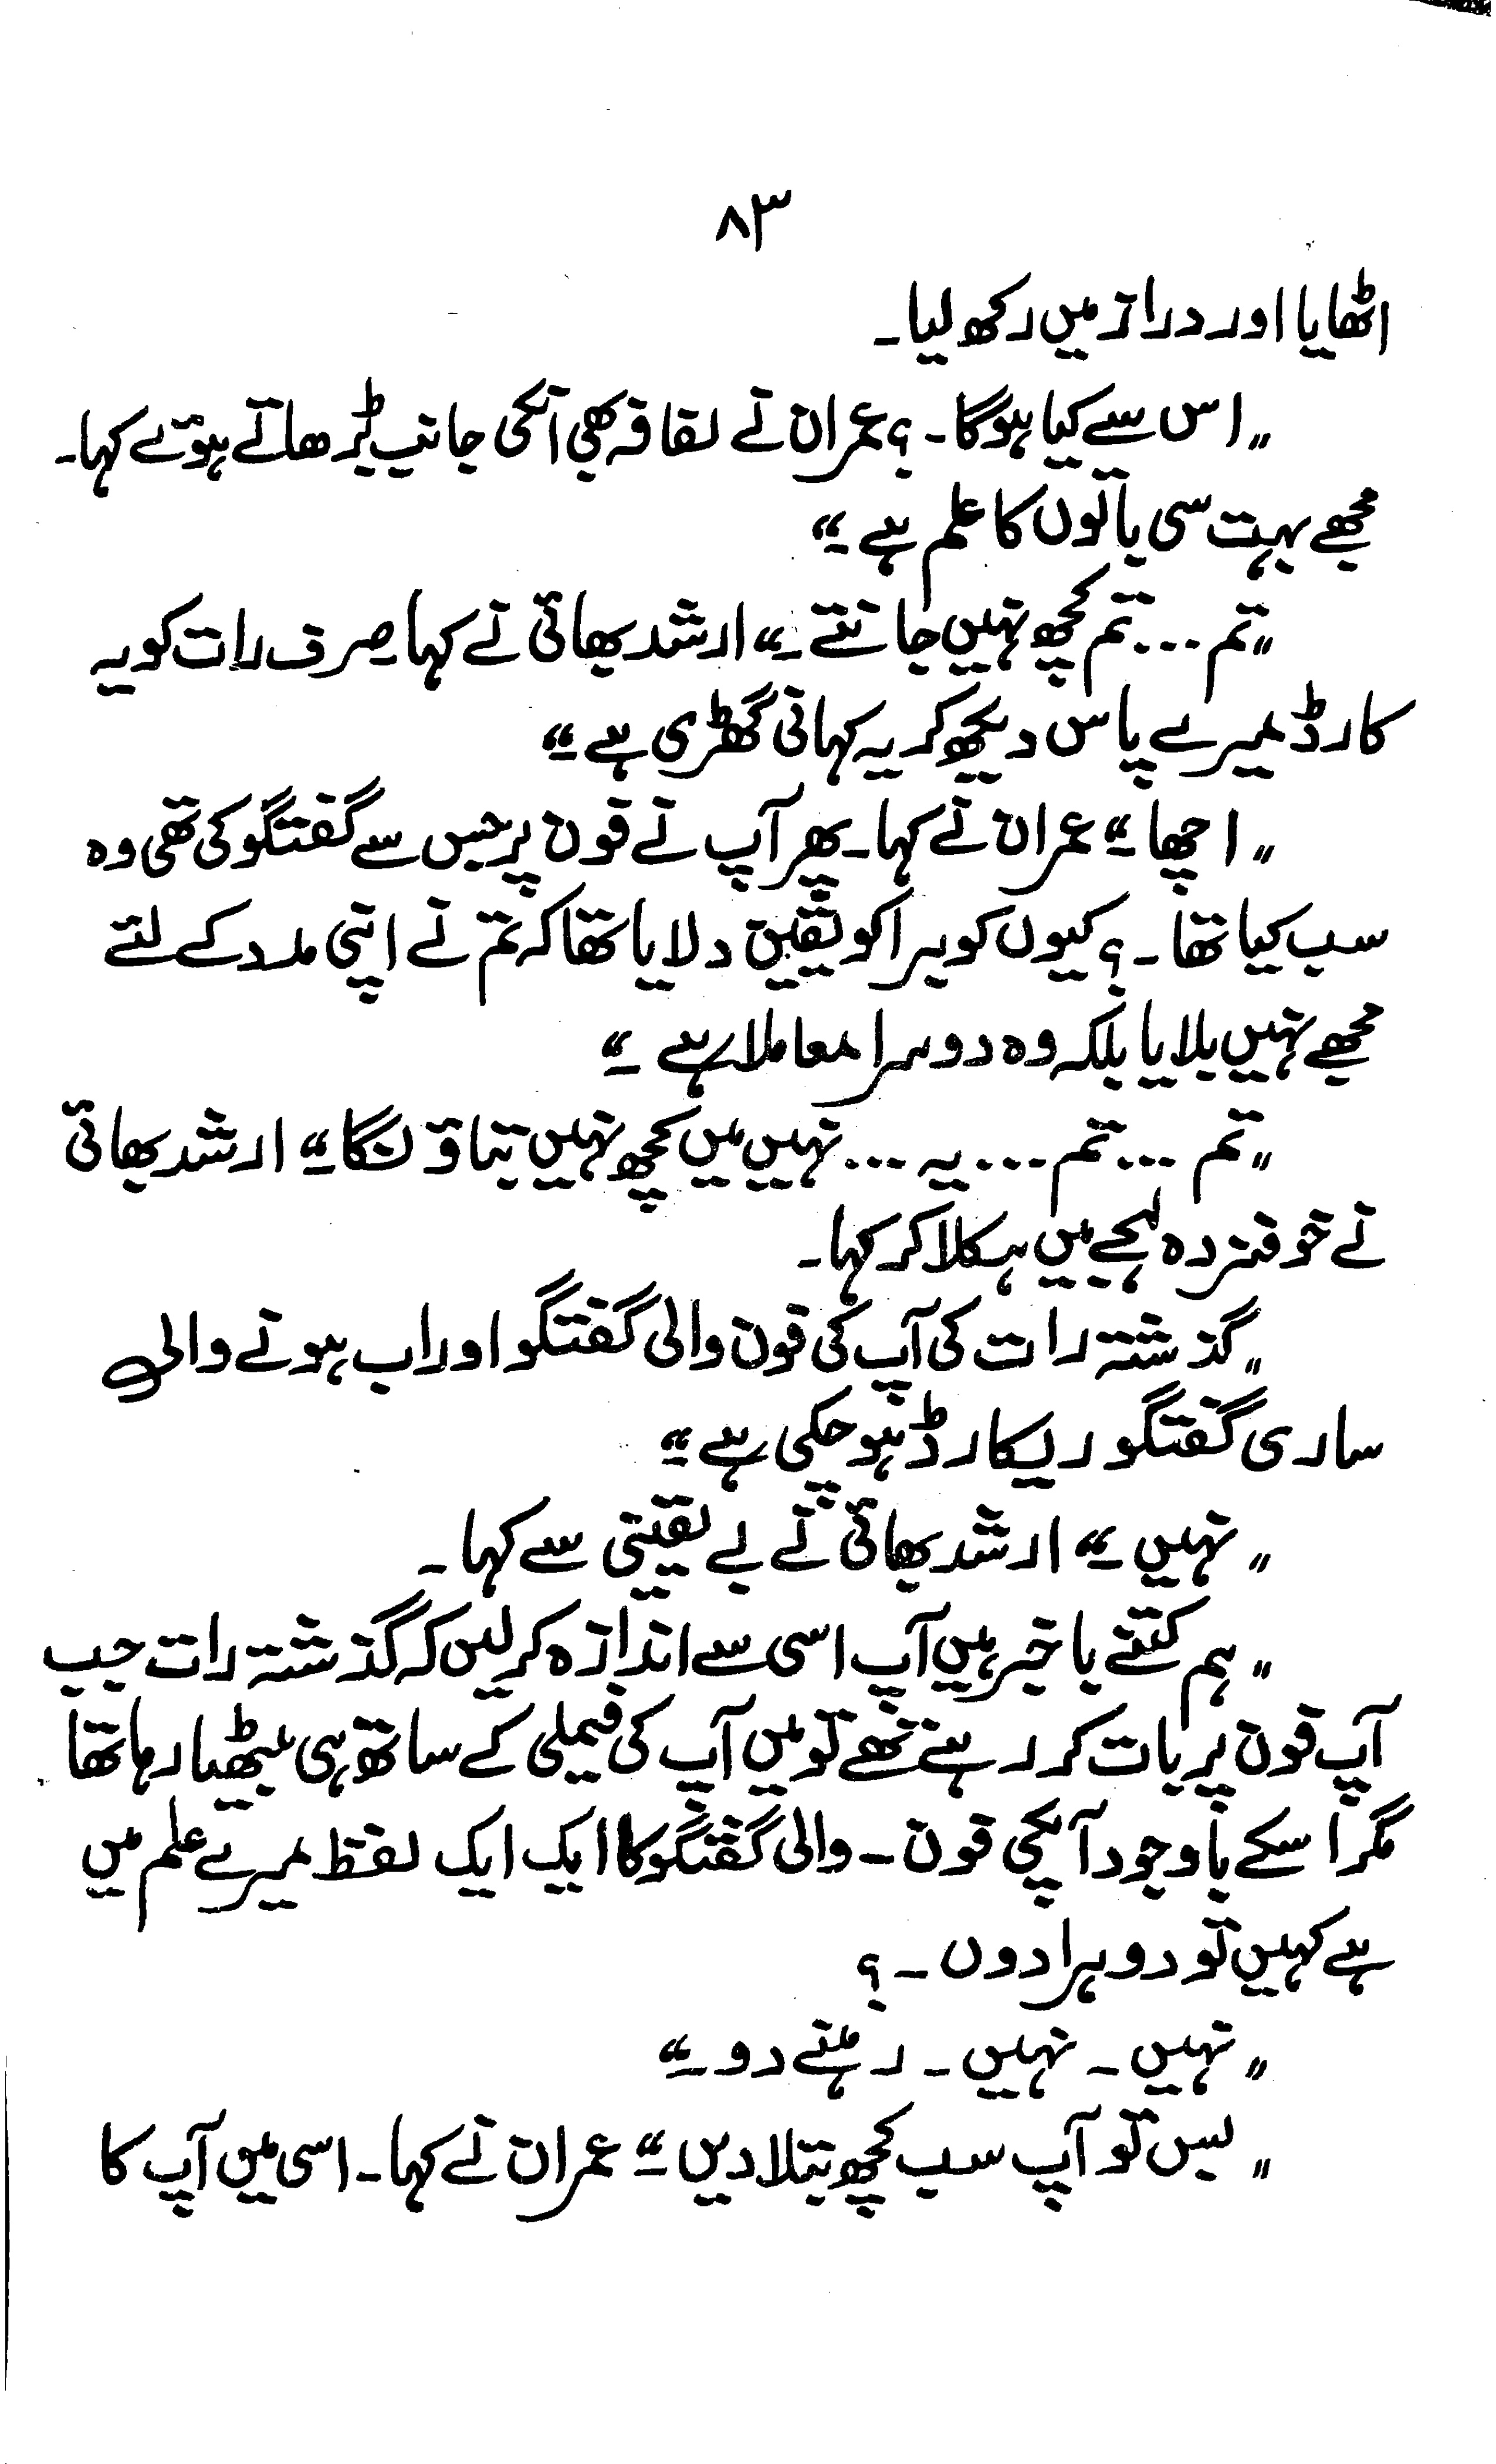 ۸۳
اٹھایا اور دراز میں رکھ لیا۔
"اس سے کیا ہوگا۔؟ عمران نے لفافہ بھی انکی جانب بڑھاتے ہوئے کہا۔
مجھے بہت سی باتوں کا علم ہے۔"
"تم ... تم کچھ نہیں جانتے۔" ارشد بھائی نے کہا۔ صرف رات کو یہ
کارڈ میرے پاس دیکھ کر یہ کہانی گھڑی ہے۔"
"اچھا۔" عمران نے کہا۔ پھر آپ نے فون پر جس سے گفتگو کی تھی وہ
سب کیا تھا۔؟ کیوں کوبرا کو یقین دلایا تھا کہ تم نے اپنی مدد کے لئے
مجھے نہیں بلایا بلکہ وہ دوسرا معاملا ہے۔"
"تم ... تم ... یہ ... نہیں میں کچھ نہیں بتاؤ نگا۔" ارشد بھائی
نے خوفزدہ لہجے میں ہکلا کر کہا۔
"گذشتہ رات کی آپ کی فون والی گفتگو اور اب ہونے والی
ساری گفتگو ریکارڈ ہو چکی ہے۔"
"نہیں۔" ارشد بھائی نے بے یقینی سے کہا۔
"ہم کتنے باخبر ہیں آپ اسی سے اندازہ کر لیں کہ گذشتہ رات جب
آپ فون پر بات کر رہے تھے تو میں آپ کی فیملی کے ساتھ ہی بیٹھا رہا تھا
مگر اسکے باوجود آپکی فون۔ والی گفتگو کا ایک ایک لفظ میرے علم میں
ہے کہیں تو دوہرا دوں۔؟
"نہیں۔ نہیں۔ رہنے دو۔"
"بس تو آپ سب کچھ بتلا دیں۔" عمران نے کہا۔ اسی میں آپ کا